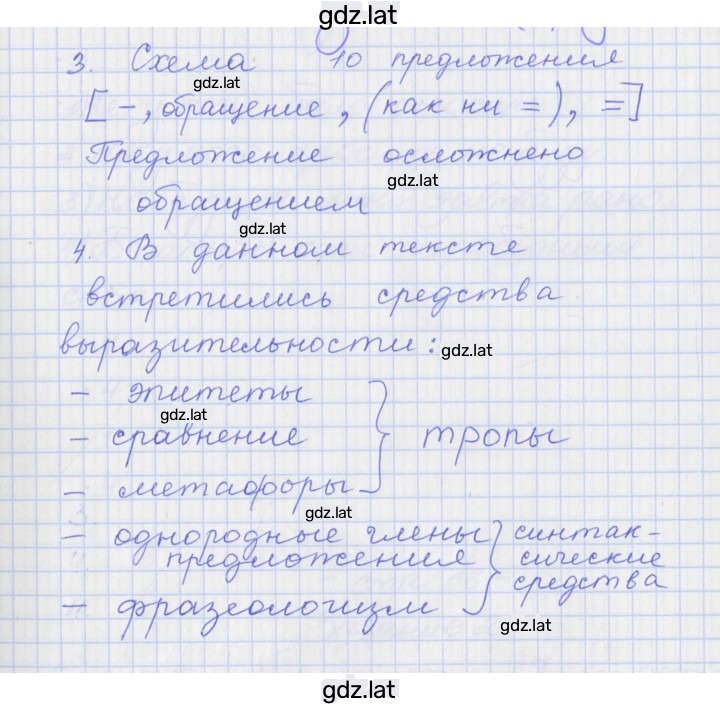 gdz.lat
3. Схема 10 предложения
gdz.lat
[ –, обращение, (как ни =), =]
Предложение осложнено
gdz.lat
обращением
gdz.lat
4. В данном тексте
встретились средства
выразительности: gdz.lat
– эпитеты
gdz.lat
– сравнение } тропы
– метафоры
gdz.lat
– однородные члены } синтак-
предложения сические
средства
– фразеологизм
gdz.lat
gdz.lat